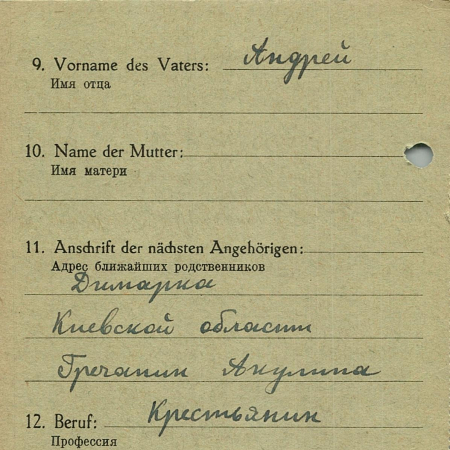 9. Vorname des Vaters: Андрей
Имя отца
10. Name der Mutter:
Имя матери
11. Anschrift der nächsten Angehörigen:
Адрес ближайших родственников
Димарка
Киевской области
Гречанин Акулина
12. Beruf: Крестьянин
Профессия